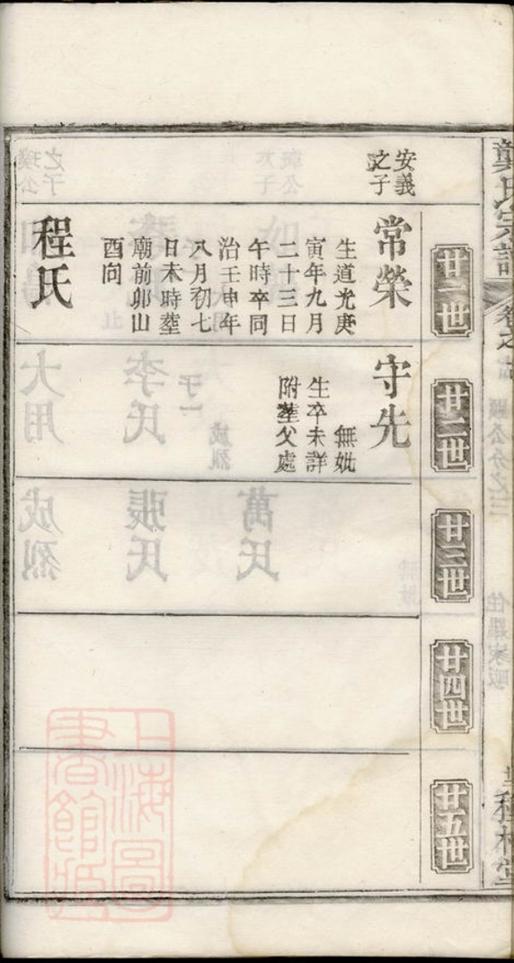 龔氏宗譜
卷之
廿一世
廿二世
廿三世
廿四世
廿五世
安義
之子
常榮
生道光庚
寅年九月
二十三日
午時卒同
治壬申年
八月初七
日未時塟
廟前卯山
酉向
程氏
守先
無妣
生卒未詳
附塟父處
上海圖
書館藏